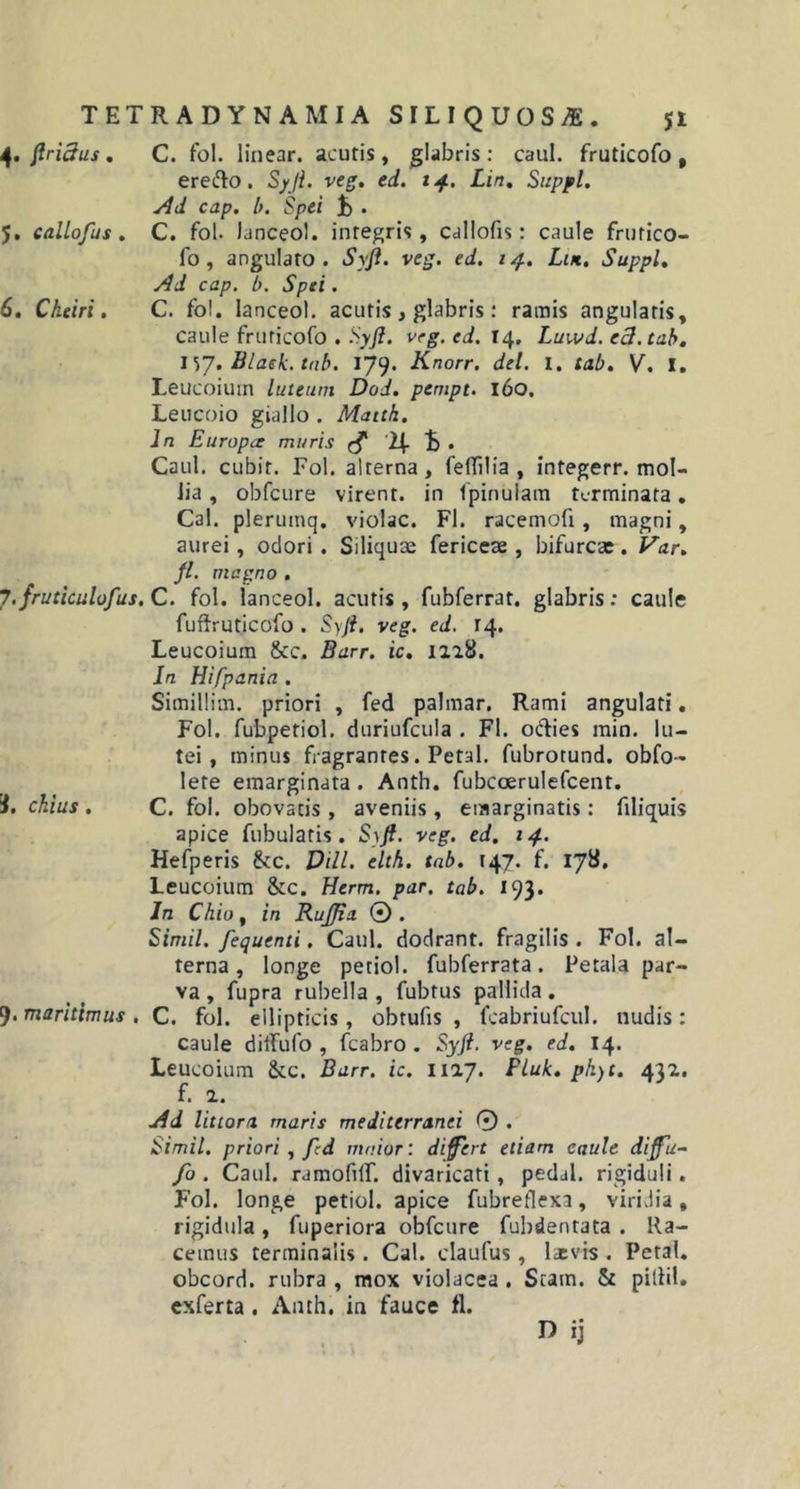 TETRADYNAMIA SILIQUOSÆ. 51
4. ſtrictus. C. fol. linear. acutis, glabris: caul. fruticoſo,
erecto. Syſt. veg. ed. 14. Lin. Suppl.
Ad cap. b. Spei ♄.
5. calloſus. C. fol. lanceol. integris, calloſis: caule frutico-
ſo, angulato. Syſt. veg. ed. 14. Lin. Suppl.
Ad cap. b. Spei.
6. Cheiri. C. fol. lanceol. acutis, glabris: ramis angulatis,
caule fruticoſo. Syſt. veg. ed. 14. Luwd. ect. tab.
157. Black. tab. 179. Knorr. del. 1. tab. V. 1.
Leucoium luteum Dod. pempt. 160.
Leucoio giallo. Matth.
In Europæ muris ♂ ♃ ♄.
Caul. cubit. Fol. alterna, ſeſſilia, integerr. mol-
lia, obſcure virent. in ſpinulam terminata.
Cal. plerumq. violac. Fl. racemoſi, magni,
aurei, odori. Siliquæ ſericeæ, bifurcæ. Var.
fl. magno.
7. fruticuloſus. C. fol. lanceol. acutis, ſubſerrat. glabris: caule
ſuffruticoſo. Syſt. veg. ed. 14.
Leucoium &c. Barr. ic. 1228.
In Hiſpania.
Simillim. priori, ſed palmar. Rami angulati.
Fol. ſubpetiol. duriuſcula. Fl. octies min. lu-
tei, minus fragrantes. Petal. ſubrotund. obſo-
lete emarginata. Anth. ſubcœruleſcent.
8. chius. C. fol. obovatis, aveniis, emarginatis: ſiliquis
apice ſubulatis. Syſt. veg. ed. 14.
Heſperis &c. Dill. elth. tab. 147. f. 178.
Leucoium &c. Herm. par. tab. 193.
In Chio, in Ruſſia ☉.
Simil. ſequenti. Caul. dodrant. fragilis. Fol. al-
terna, longe petiol. ſubſerrata. Petala par-
va, ſupra rubella, ſubtus pallida.
9. maritimus. C. fol. ellipticis, obtuſis, ſcabriuſcul. nudis:
caule diffuſo, ſcabro. Syſt. veg. ed. 14.
Leucoium &c. Barr. ic. 1127. Pluk. phyt. 432.
f. 2.
Ad littora maris mediterranei ☉.
Simil. priori, ſed maior: differt etiam caule diffu-
ſo. Caul. ramoſiſſ. divaricati, pedal. rigiduli.
Fol. longe petiol. apice ſubreflexa, viridia,
rigidula, ſuperiora obſcure ſubdentata. Ra-
cemus terminalis. Cal. clauſus, lævis. Petal.
obcord. rubra, mox violacea. Stam. & piſtil.
exſerta. Anth. in fauce fl.
D ij